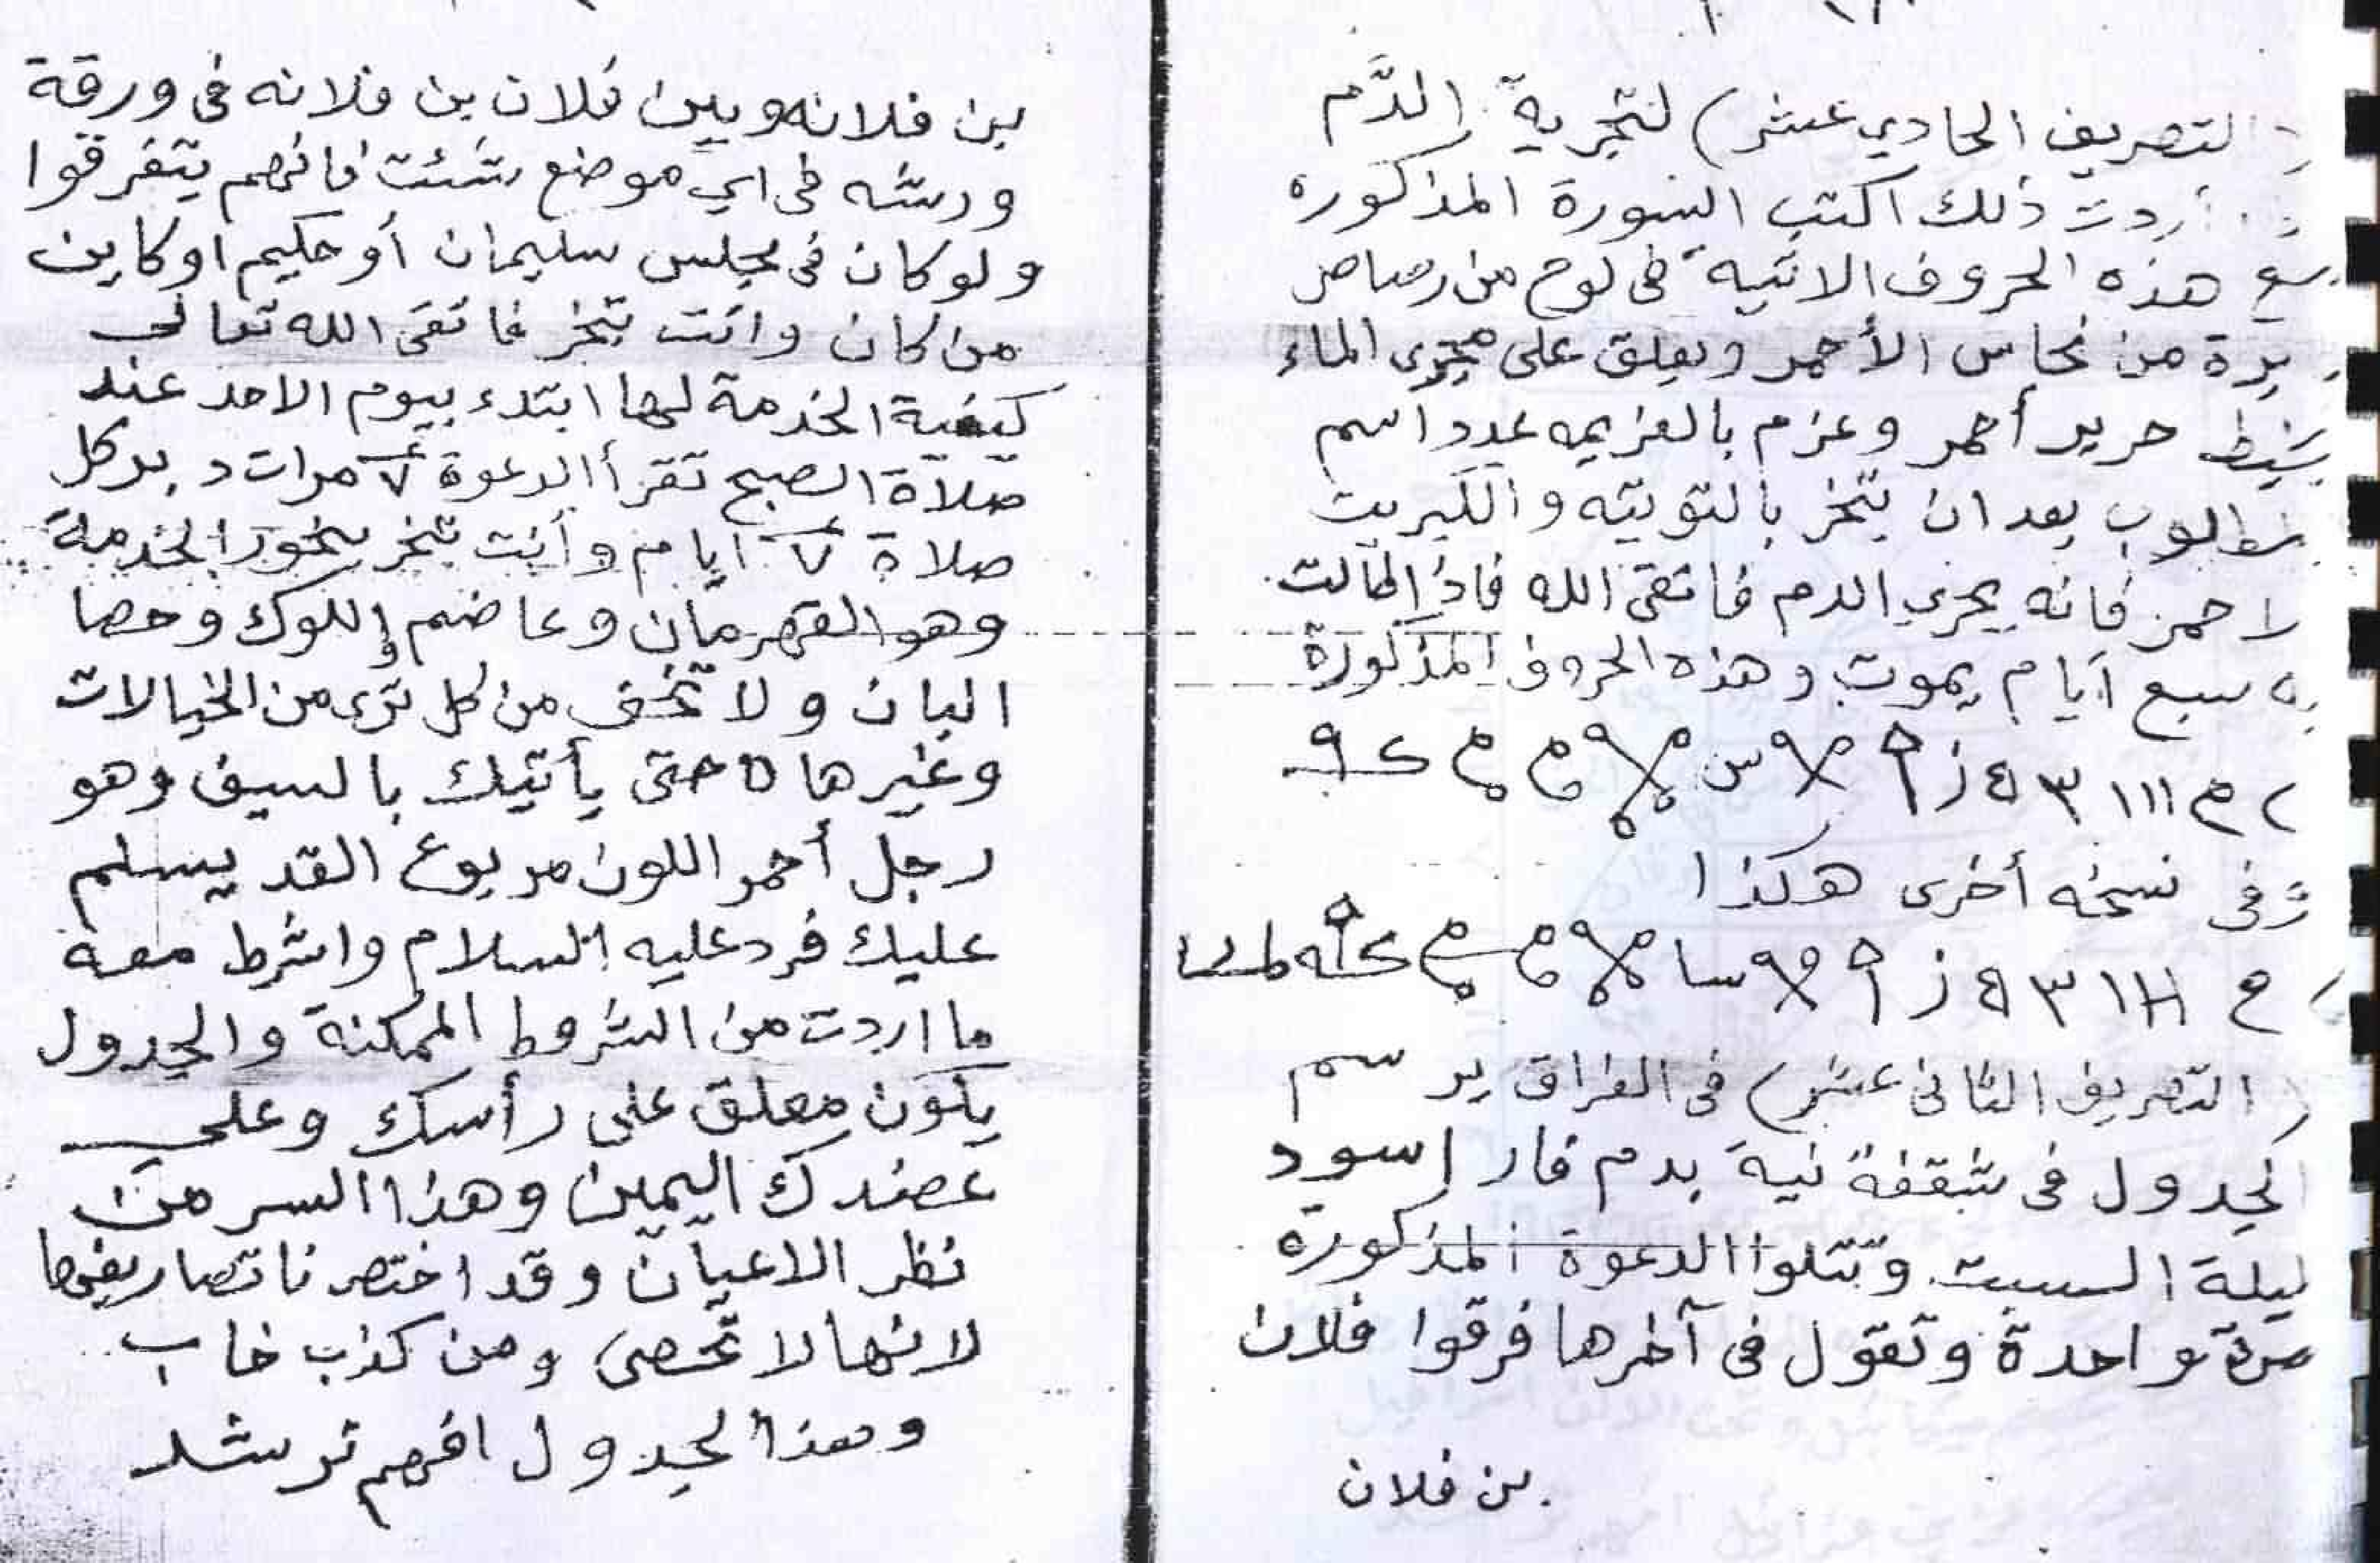 التصريف الحادي عشر) لتجرية الدَّم
أردت ذلك اكتب السورة المذكوره
مع هذه الحروف الاتيه في لوح من رصاص
من نحاس الأحمر ويعلق على مجرى الماء
بخيط حرير أحمر وعزم بالعزيمه عدد اسم
المطلوب بعد ان يتبخر بالتوتيه والكبريت
لاحمر فانه يجري الدم فاتقى الله فاذا طالت
به سبع أيام يموت وهذه الحروف المذكورة
وفى نسخه أخرى هكذا
التصريف الثانى عشر) فى الفراق يرسم
الجدول فى شقفة نية بدم فار اسود
ليلة السبت وتتلوا الدعوة المذكورة
مرة واحدة وتقول فى آخرها فرقوا فلان
بن فلان
بن فلانه وبين فلان بن فلانه فى ورقة
ورشه فى اي موضع شئت فانهم يتفرقوا
ولو كان فى مجلس سليمان أو حكيم او كاين
من كان وانت تبخر فاتقى الله تعالى
كيفية الخدمة لها ابتدء بيوم الاحد عند
صلاة الصبح تقرأ الدعوة ٧ مرات دبر كل
صلاة ٧ ايام وأنت تبخر بخور الخدمة
وهو القهرمان وعاضم واللوك وحصا
البان ولا تخف من كل ترى من الخيالات
وغيرها ه حتى يأتيك بالسيف وهو
رجل أحمر اللون مربوع القد يسلم
عليك فرد عليه السلام واشرط معه
ما اردت من الشروط الممكنة والجدول
يكون معلق على رأسك وعلى
عضدك اليمين وهذا السر من
نظر الاعيان وقد اختصرنا تصاريفها
لانها لا تحصى ومن كذب خاب
وهذا لجدول افهم ترشد